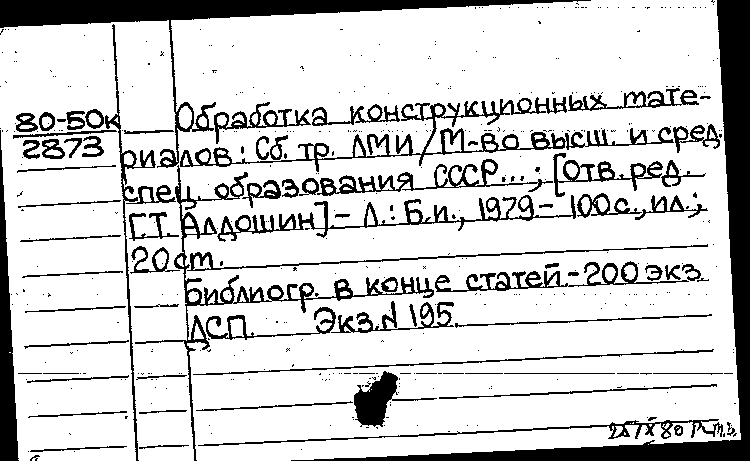 80-50к
2873
Обработка конструкционных мате-
риалов: Сб. тр. ЛМИ / М-во высш. и сред.
спец. образования СССР...; [Отв. ред.
Г.Т. Алдошин] - Л.: Б.и., 1979 - 100 с., ил.;
20 ст.
Библиогр. в конце статей. - 200 экз
ДСП. Экз. N 195.
25/IX 80